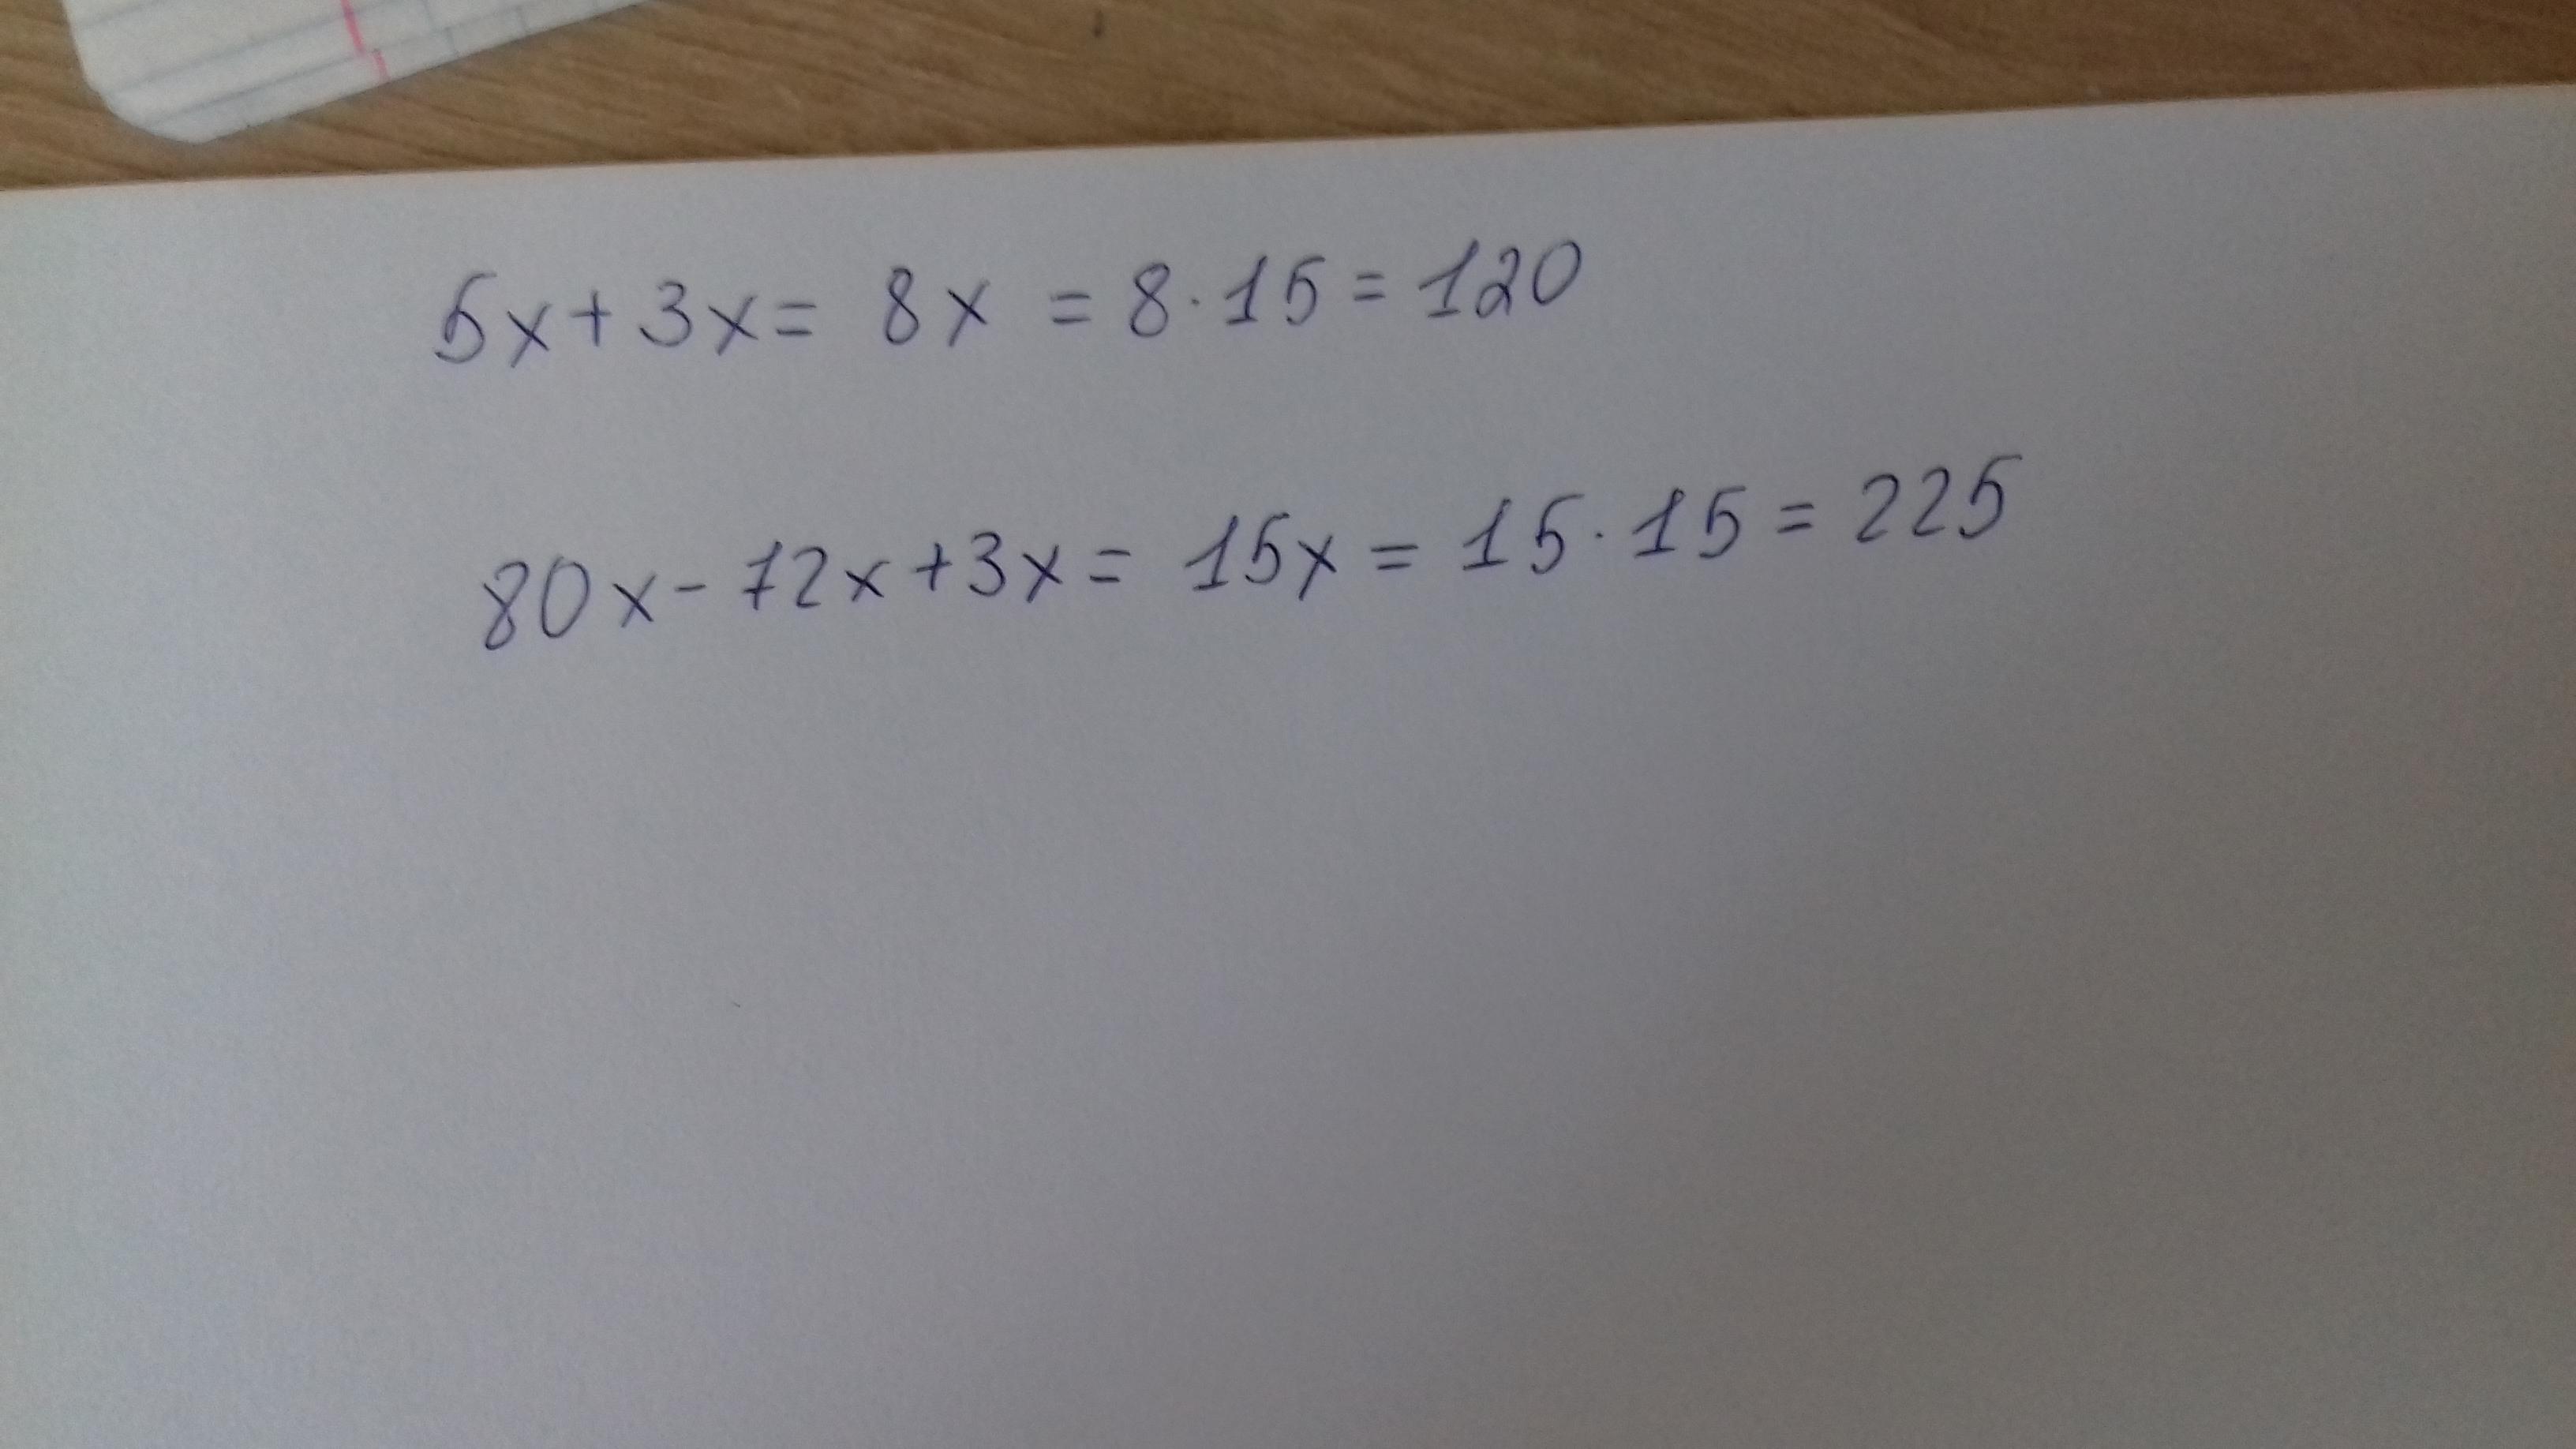 5x+3x= 8x = 8·15=120
80x-72x+3x= 15x = 15·15=225